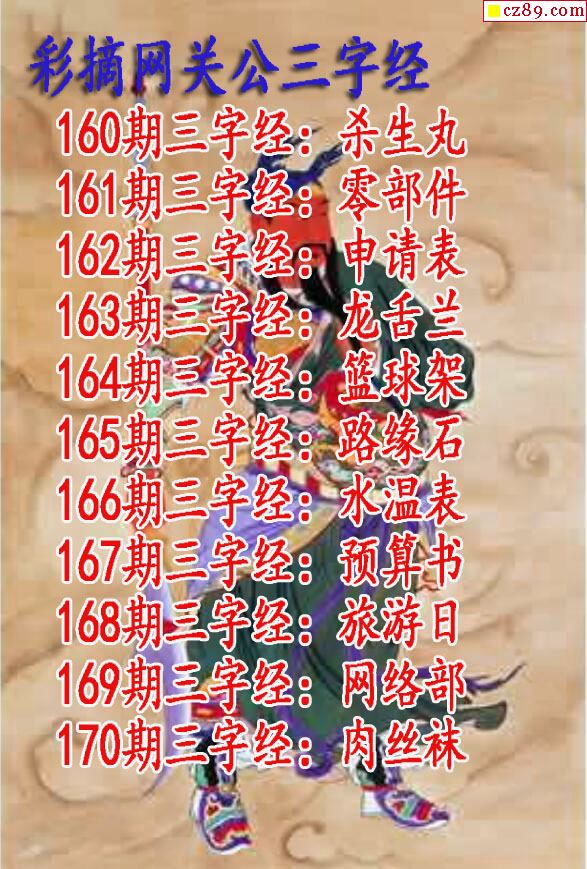 cz89.com
彩摘网关公三字经
160期三字经：杀生丸
161期三字经：零部件
162期三字经：申请表
163期三字经：龙舌兰
164期三字经：篮球架
165期三字经：路缘石
166期三字经：水温表
167期三字经：预算书
168期三字经：旅游日
169期三字经：网络部
170期三字经：肉丝袜